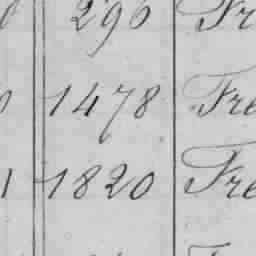 296 Fr
1478 Fre
1 1820 Fre